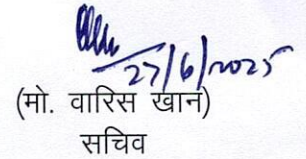 27/6/2025
(मो. वारिस खान)
सचिव